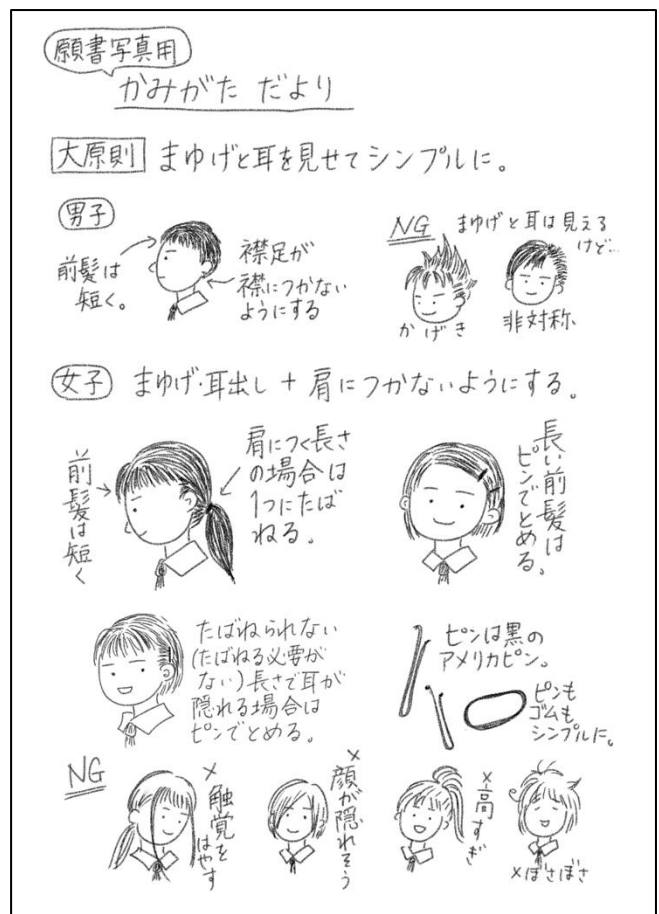 願書写真用
かみがた だより
大原則 まゆげと耳を見せてシンプルに。
男子
前髪は
短く。
襟足が
襟につかない
ようにする
NG まゆげと耳は見える
けど…
かげき
非対称
女子 まゆげ・耳出し + 肩につかないようにする。
前髪は短く
肩につく長さ
の場合は
1つにたば
ねる。
長い前髪は
ピンでとめる。
たばねられない
(たばねる必要が
ない)長さで耳が
隠れる場合は
ピンでとめる。
ピンは黒の
アメリカピン。
ピンも
ゴムも
シンプルに。
NG
×触覚を
はやす
×顔が隠れそう
×高すぎ
×ぼさぼさ